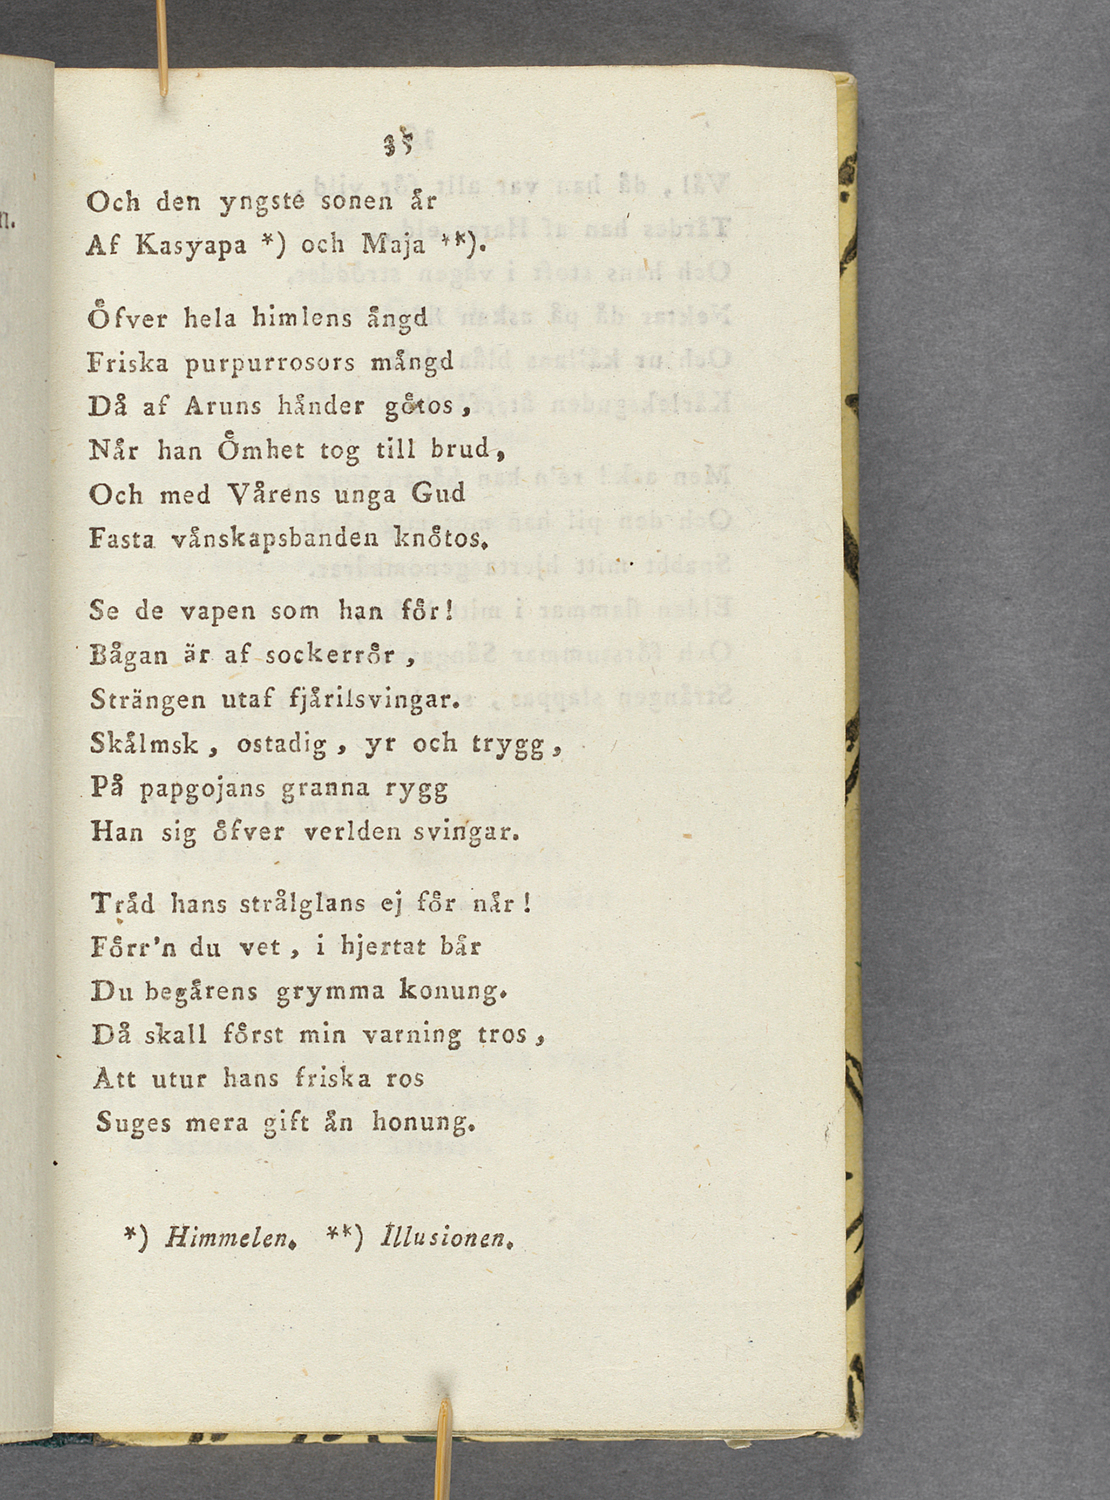 n.
35
Och den yngste sonen är
Af Kasyapa *) och Maja **).
Öfver hela himlens ängd
Friska purpurrosors mängd
Då af Aruns händer götos,
När han Ömhet tog till brud,
Och med Vårens unga Gud
Fasta vänskapsbanden knötos.
Se de vapen som han för!
Bågan är af sockerrör,
Strängen utaf fjärilsvingar.
Skälmsk, ostadig, yr och trygg,
På papgojans granna rygg
Han sig öfver verlden svingar.
Träd hans strålglans ej för när!
Förr'n du vet, i hjertat bär
Du begärens grymma konung.
Då skall först min varning tros,
Att utur hans friska ros
Suges mera gift än honung.
*) Himmelen. **) Illusionen.